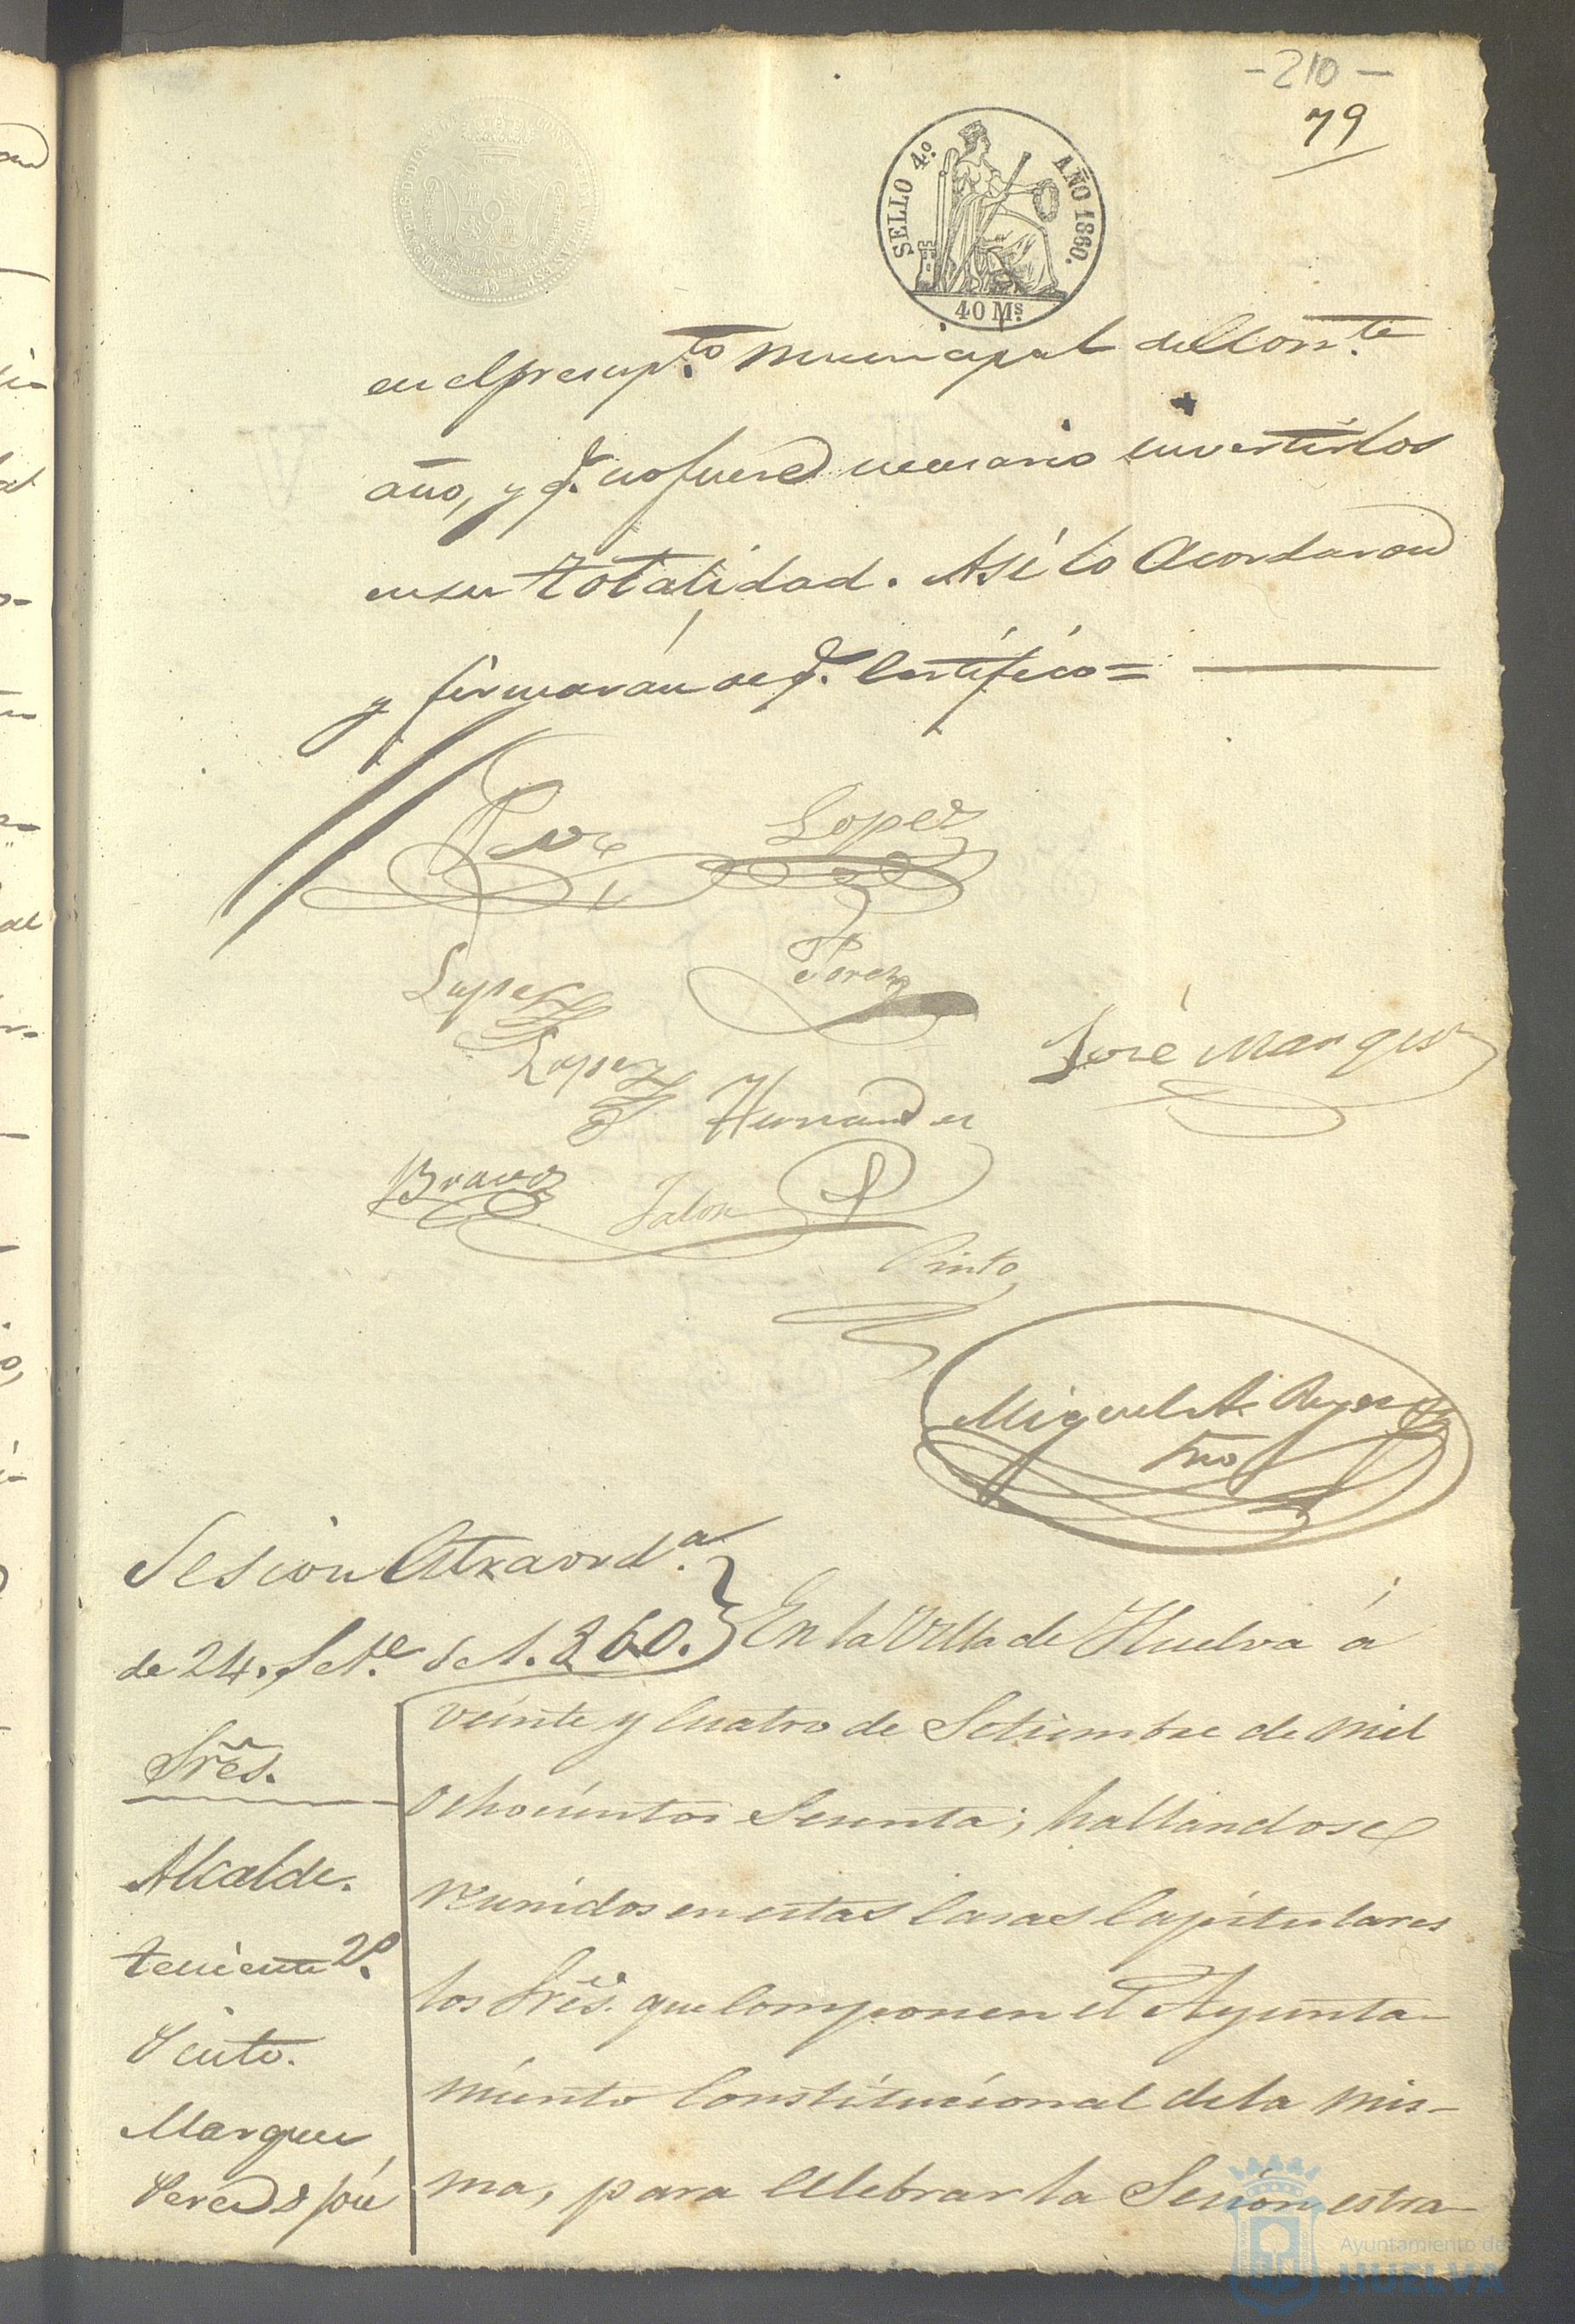 -210-
79
SELLO 4.º AÑO 1860.
40 Ms
en el presup.to municipal del corr.te
año, y q.e no fuere necesario invertirlos
en su totalidad. Así lo acordaron
y firmarán de q.e Certifico=
Lopez
Lopez
Perez
Lopez
José Marquez
Hernandez
Bravo
Jalon
Pinto
Miguel A. Reyes
Srio
Sesion Estraord.a
de 24. Set.e de 1.860.
En la Villa de Huelva á
veinte y cuatro de Setiembre de mil
ochocientos Sesenta; hallandose
reunidos en estas Casas Capitulares
los Sres. que componen el Ayunta-
miento Constitucional de la mis-
ma, para celebrar la Sesion estra-
Sres.
Alcalde.
teniente 2.º
Pinto.
Marquez
Perez D. José
Ayuntamiento de
HUELVA